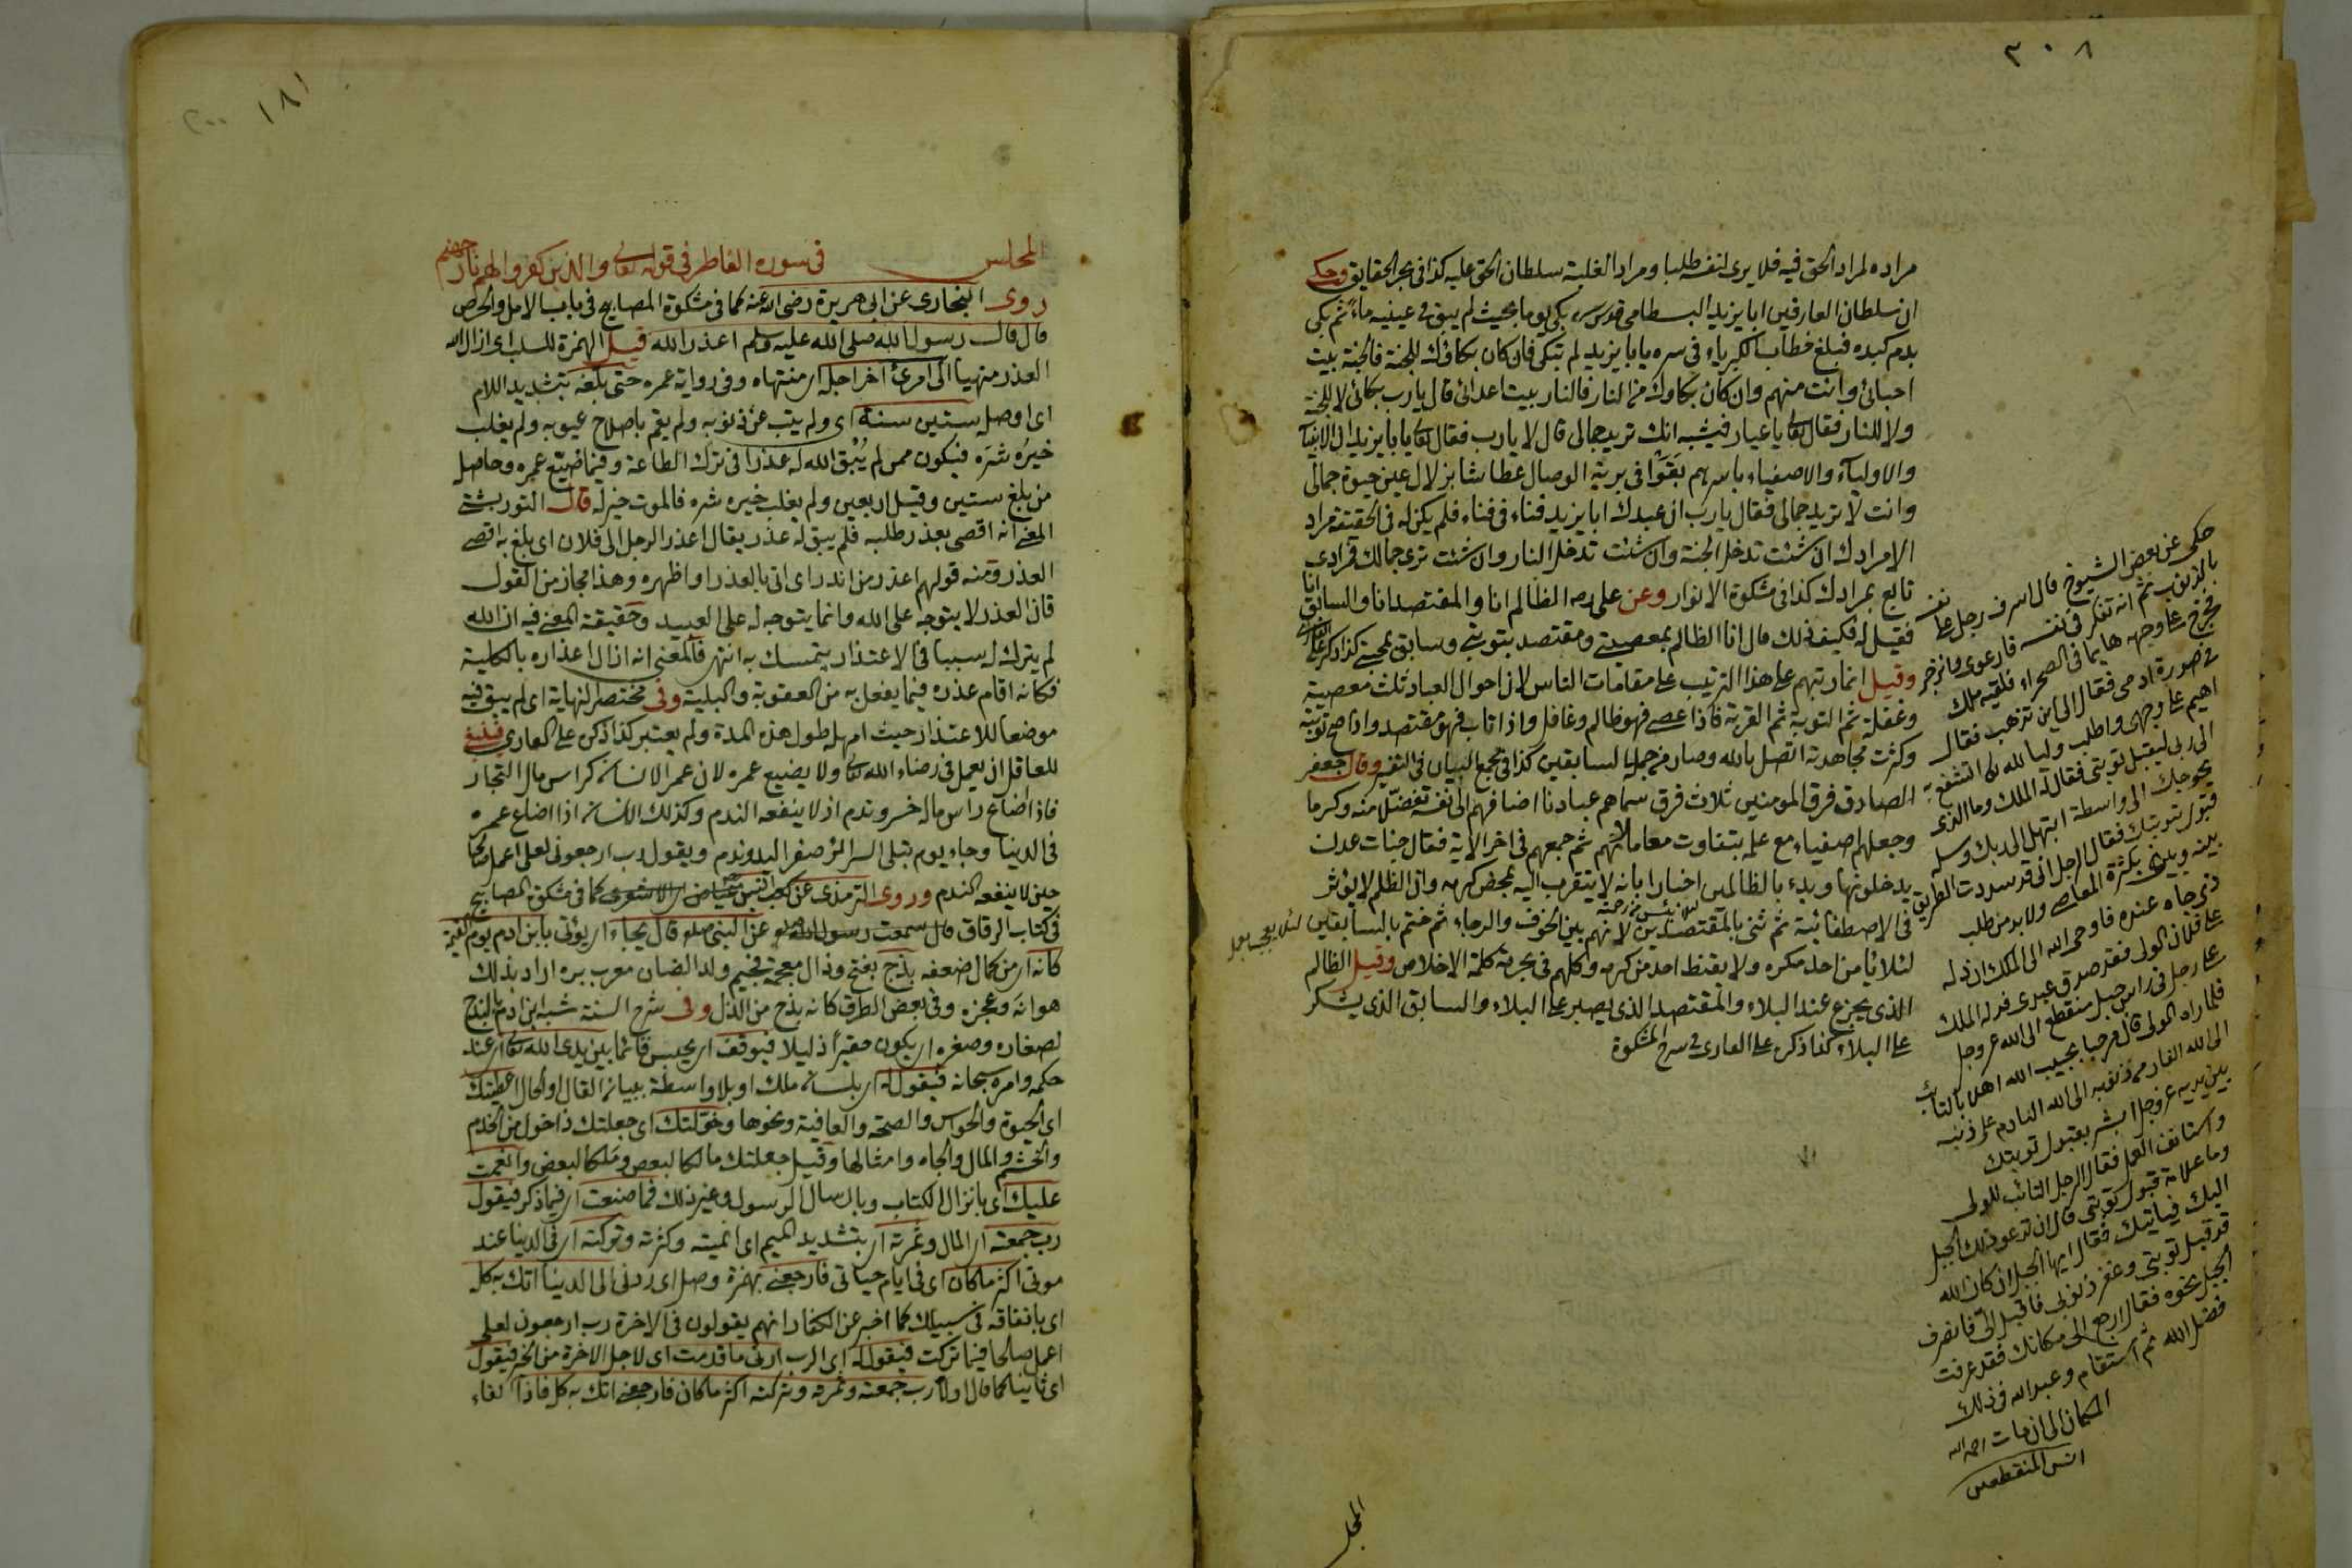 ٣٠٨
مراده لمراد الحق فيه فلا يرى لنفسه طلبا ومراد الغلبة سلطان الحق عليه كذا فى بحر الحقايق وحكى
ان سلطان العارفين ابا يزيد البسطامى قدس سره بكى يوما بحيث لم يبق فى عينيه ماء ثم بكى
بدم كبده فبلغ خطاب الكبرياء فى سره يا با يزيد لم تبكى فان كان بكاؤك للجنة فالجنة بيت
احبائى وانت منهم وان كان بكاوك من النار فالنار بيت اعدائى قال يا رب بكائى لا للجنة
ولا للنار فقال تعالى يا عيار فيشبه انك تريد جمالى قال لا يا رب فقال تعالى يا با يزيد ان الانبياء
والاولياء والاصفياء باسرهم بقوا فى برية الوصال عطاشا بزلال عين حيوة جمالى
وانت لا تريد جمالى فقال يا رب ان عبدك ابا يزيد فناء فى فناء فلم يكن له فى الحقيقة مراد
الا مرادك ان شئت تدخل الجنة وان شئت تدخل النار وان شئت ترى جمالك فمرادى
تابع بمرادك كذا فى مشكوة الانوار وعن على رضه الظالم انا والمقتصد انا والسابق انا
فقيل له فكيف ذلك قال انا الظالم بمعصيتى ومقتصد بتوبتى وسابق بمحبتى كذا ذكر
وقيل انما رتبهم على هذا الترتيب على مقامات الناس لان احوال العباد ثلث معصية
وغفلة ثم التوبة ثم القربة فاذا عصى فهو ظالم وغافل واذا تاب فهو مقتصد واذا صح توبته
وكثرت مجاهدته اتصل بالله وصار من جملة السابقين كذا فى مجمع البيان فى التفسير وقال جعفر
الصادق فرق المومنين ثلاث فرق سماهم عبادنا اضافهم الى نفسه تفضلا منه وكرما
وجعلهم اصفياء مع علمه بتفاوت معاملاتهم ثم جمعهم فى اخر الاية فقال جنات عدن
يدخلونها وبدء بالظالمين اخبارا بانه لا يتقرب اليه بمحض كرمه وان الظلم لا يؤثر
فى الاصطفائية ثم ثنى بالمقتصدين لانهم بين الخوف والرجاء ثم ختم بالسابقين
لئلا يأمن احد مكره ولا يقنط احد من كرمه وكلهم فى بحرمة كلمة الاخلاص وقيل الظالم
الذى يجزع عند البلاء والمقتصد الذى يصبر على البلاء والسابق الذى يشكر
على البلاء كذا ذكره على القارى فى شرح المشكوة
حكى عن بعض الشيوخ قال اسرف رجل على نفسه
بالذنوب ثم انه تفكر فى نفسه فارعوى وانزجر
فخرج على وجهه هايما فى الصحراء فلقيه ملك
فى صورة ادمى فقال الى اين تذهب فقال
اهيم على وجهى واطلب وليا لله تعالى اتشفع به
الى ربى ليقبل توبتى فقال له الملك وما الذى
يحوجك الى واسطة ابتهل الى ربك وسله
قبول توبتك فقال الرجل انى قد سددت الطريق
بينه وبينى بكثرة المعاصى ولا بد من طلب
ذى جاه عنده فاوحى الله الى الملك ان دله
على فلان الولى فقد صدق عبدى فدله الملك
على رجل فى راس جبل منقطع الى الله عز وجل
فلما راه الولى قال مرحبا بحبيب الله اهلا بالتائب
الى الله الفار من ذنوبه الى الله النادم على ذنبه
بين يديه عز وجل ابشر بقبول توبتك
واستانف العمل فقال الرجل التائب للولى
وما علامة قبول توبتى قال ان تدعو ذلك الجبل
اليك فياتيك فقال ايها الجبل ان كان الله
قد قبل توبتى وغفر ذنوبى فاقبل الى فانصرف
الجبل نحوه فقال ارجع الى مكانك فقد عرفت
فضل الله ثم استقام وعبد الله فى ذلك
المكان الى ان مات رحمه الله
انس المنقطعين
المجلس
١٨١
٢٠٠
المجلس فى سورة الفاطر فى قوله تعالى والذين كفروا لهم نار جهنم
روى البخارى عن ابى هريرة رضى الله عنه كما فى مشكوة المصابيح فى باب الامل والحرص
قال قال رسول الله صلى الله عليه وسلم اعذر الله قيل الهمزة للسلب اى ازال الله
العذر منهيا الى امرئ اخر اجله اى منتهاه وفى رواية عمره حتى بلغه بتشديد اللام
اى اوصله ستين سنة اى ولم يتب عن ذنوبه ولم يقم باصلاح عيوبه ولم يغلب
خيره شره فيكون ممن لم يبق الله له عذرا فى ترك الطاعة وفيما ضيع عمره وحاصله
من بلغ ستين وقيل اربعين ولم يغلب خيره شره فالموت خير له قال التوربشتى
المعنى انه اقصى بعذر طلبه فلم يبق له عذر يقال اعذر الرجل الى فلان اى بلغ به اقصى
العذر ومنه قولهم اعذر من انذر اى اتى بالعذر او اظهره وهذا مجاز من القول
فان العذر لا يتوجه على الله وانما يتوجه له على العبيد وحقيقة المعنى فيه ان الله
لم يترك له سببا فى الاعتذار يتمسك به انتهى فالمعنى انه ازال اعذاره بالكلية
فكانه اقام عذره فيما يفعل به من العقوبة والبلية وفى مختصر النهاية اى لم يبق فيه
موضعا للاعتذار حيث امهله طول هذه المدة ولم يعتبر كذا ذكره على القارى فينبغى
للعاقل ان يعمل فى رضاء الله تعالى ولا يضيع عمره لان عمر الانسان كراس مال التجار
فاذا اضاع راس ماله خسر وندم اذ لا ينفعه الندم وكذلك الانسان اذا اضاع عمره
فى الدنيا وجاء يوم تبلى السرائر صفر اليد وندم ويقول رب ارجعونى لعلى اعمل صالحا
حين لا ينفعه الندم وروى الترمذى عن كعب بن عياض الاشعرى كما فى مشكوة المصابيح
فى كتاب الرقاق قال سمعت رسول الله عن النبى صلعم قال يجاء اى يؤتى بابن ادم يوم القيمة
كانه اى من كمال ضعفه بذج بفتح وذال معجمة فجيم ولد الضان معرب بره اراد بذلك
هوانه وعجزه وفى بعض الطرق كانه بذج من الذل وفى شرح السنة شبه ابن ادم بالبذج
لصغاره وصغره اى يكون حقيرا ذليلا فيوقف اى يحبس قائما بين يدى الله تعالى اى عند
حكمه وامره سبحانه فيقول له اى بلسان ملك او بلا واسطة ببيان القال او الحال اعطيتك
اى الحيوة والحواس والصحة والعافية ونحوها وخولتك اى جعلتك ذا خول من الخدم
والحشم والمال والجاه وامثالها وقيل جعلتك مالكا لبعض وملكا لبعض وانعمت
عليك اى بانزال الكتاب وبارسال الرسول وغير ذلك فما صنعت اى فيما ذكر فيقول
رب جمعته اى المال وثمرته اى بتشديد الميم اى انميته وكثرته وتركته اى فى الدنيا عند
موتى اكثر ما كان اى فى ايام حياتى فارجعنى بهمزة وصل اى ردنى الى الدنيا اتك به كله
اى بانفاقه فى سبيلك كما اخبر عن الكفار انهم يقولون فى الاخرة رب ارجعون لعلى
اعمل صالحا فيما تركت فيقول له اى الرب ارنى ما قدمت اى لاجل الاخرة من الخير فيقول
اى ثانيا كما قال اولا رب جمعته وثمرته وتركته اكثر ما كان فارجعنى اتك به كله فاذا